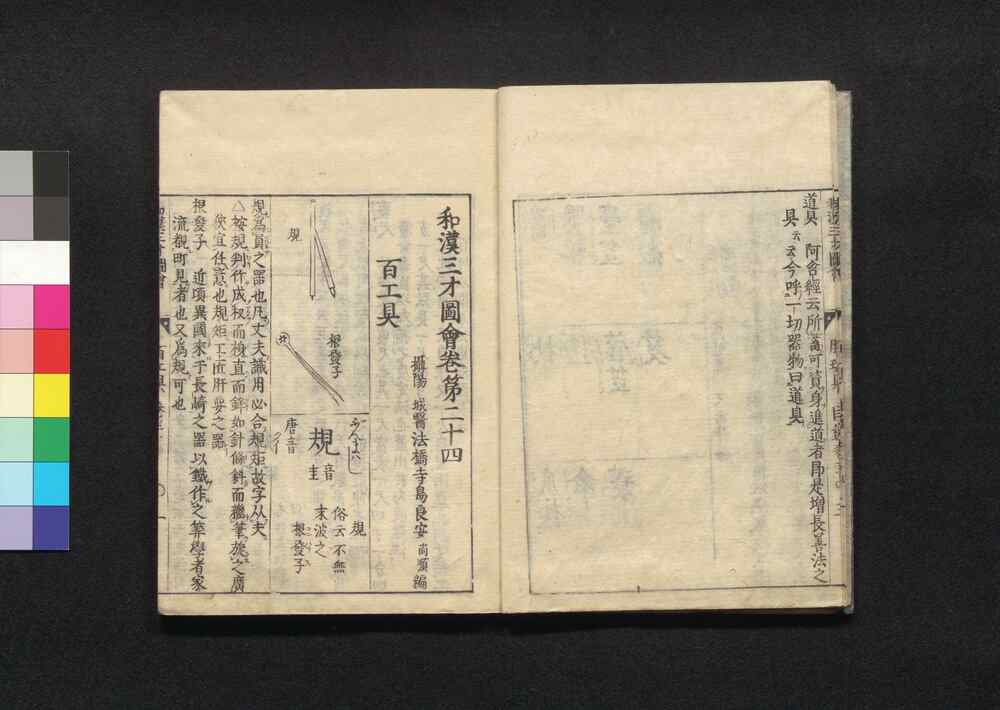 道具 阿含經云所有可資身進道者即是増長善法之
具云云今呼一切器物曰道具
和漢三才圖會卷第二十四
攝陽 城醫法橋寺島良安 尚順 編
百工具
規
根發子
規
音
圭
唐音
クイ
規
俗云不無
末波之
根發子
規爲員之器也凡丈夫識用必合規矩故字从夫
△按規判竹成釵而梭直而鋒如針條針而蘸筆旋之廣
狹宜任意也規矩工匠肝要之器
根發子 近頃異國來于長崎之器以鐵作之算學者家
流觀町見者也又爲規可也